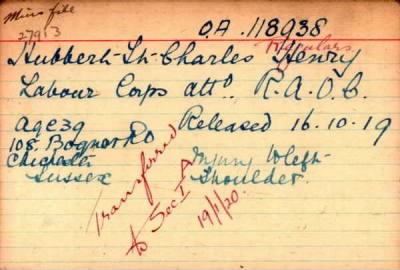 Misc file
27913
O.A. 118938
Regulars.
Hubbert Lt. Charles Henry
Labour Corps attd. R.A.O.C.
Age 39 Released 16.10.19
108. Bognor Rd
Chichester
Sussex
Injury to left
Shoulder.
Transferred
to Sec. I A
19/1/20.